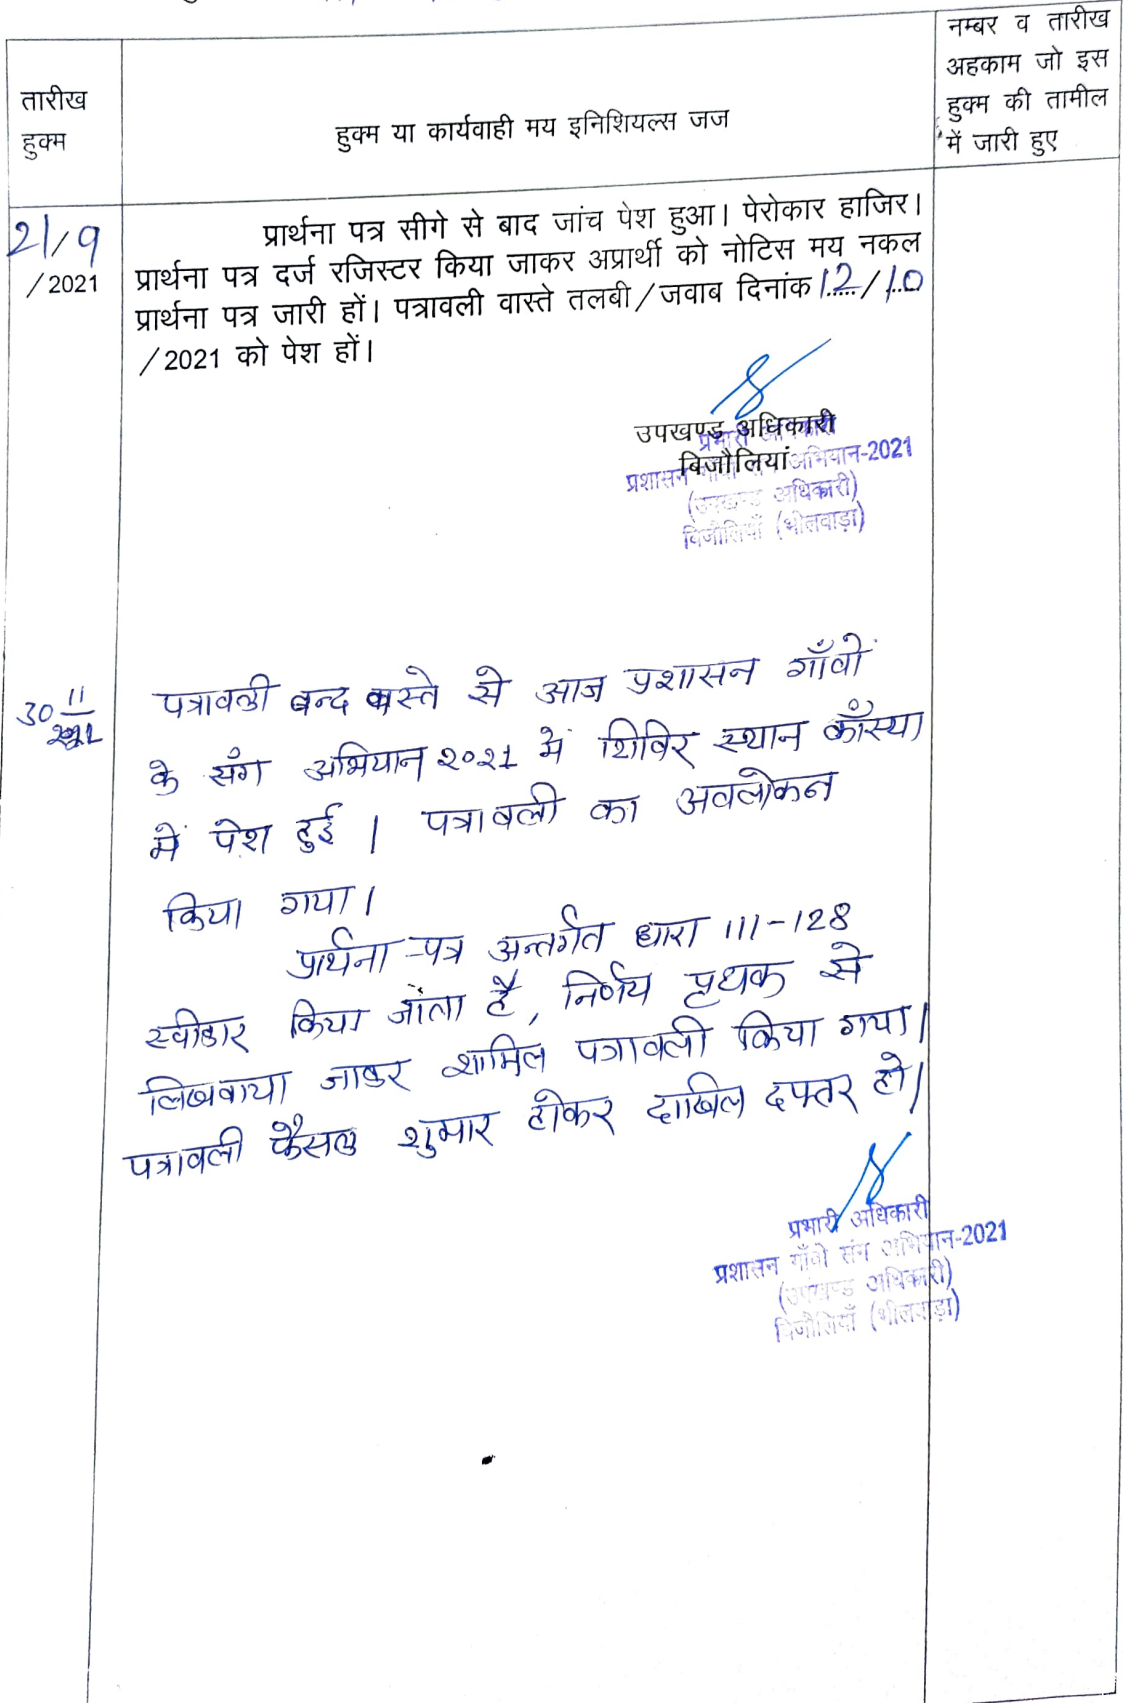 तारीख
हुक्म
हुक्म या कार्यवाही मय इनिशियल्स जज
नम्बर व तारीख
अहकाम जो इस
हुक्म की तामील
में जारी हुए
21/9
/2021
प्रार्थना पत्र सीगे से बाद जांच पेश हुआ। पेरोकार हाजिर।
प्रार्थना पत्र दर्ज रजिस्टर किया जाकर अप्रार्थी को नोटिस मय नकल
प्रार्थना पत्र जारी हों। पत्रावली वास्ते तलबी/जवाब दिनांक 12/10
/2021 को पेश हों।
उपखण्ड अधिकारी
प्रभारी अधिकारी
बिजौलियां
प्रशासन गाँवो संग अभियान-2021
(उपखण्ड अधिकारी)
बिजौलियाँ (भीलवाड़ा)
30 11
2021
पत्रावली बन्द बस्ते से आज प्रशासन गाँवों
के सँग अभियान 2021 में शिविर स्थान काँस्या
में पेश हुई। पत्रावली का अवलोकन
किया गया।
प्रार्थना-पत्र अन्तर्गत धारा 111-128
स्वीकार किया जाता है, निर्णय पृथक से
लिखवाया जाकर शामिल पत्रावली किया गया।
पत्रावली फैसल शुमार होकर दाखिल दफ्तर हो।
प्रभारी अधिकारी
प्रशासन गाँवो संग अभियान-2021
(उपखण्ड अधिकारी)
बिजौलियाँ (भीलवाड़ा)